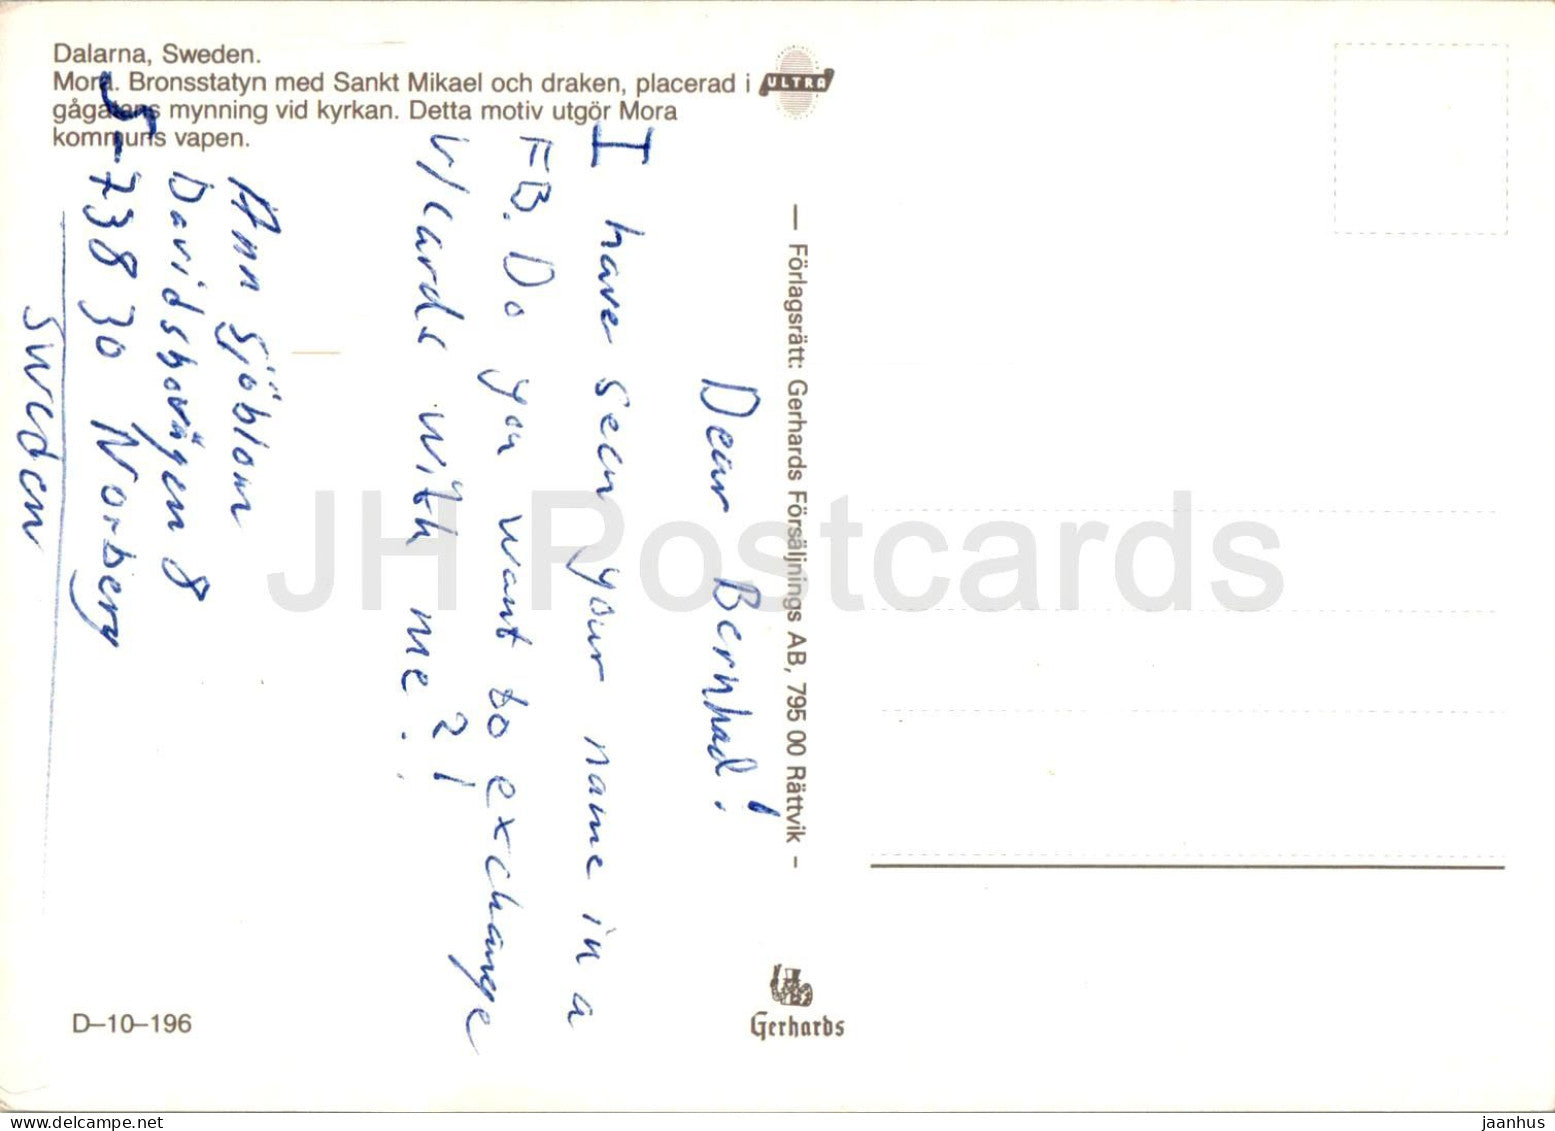 Dalarna, Sweden.
Mora. Bronsstatyn med Sankt Mikael och draken, placerad i
gågatans mynning vid kyrkan. Detta motiv utgör Mora
kommuns vapen.
ULTRA
Dear Bernhad!
I have seen your name in a
FB. Do you want to exchange
v/cards with me?!
Ann Sjöblom
Davidsbovägen 8
S-738 30 Norberg
Sweden
— Förlagsrätt: Gerhards Försäljnings AB, 795 00 Rättvik –
D–10–196
Gerhards
JH Postcards
delcampe.net
jaanhus